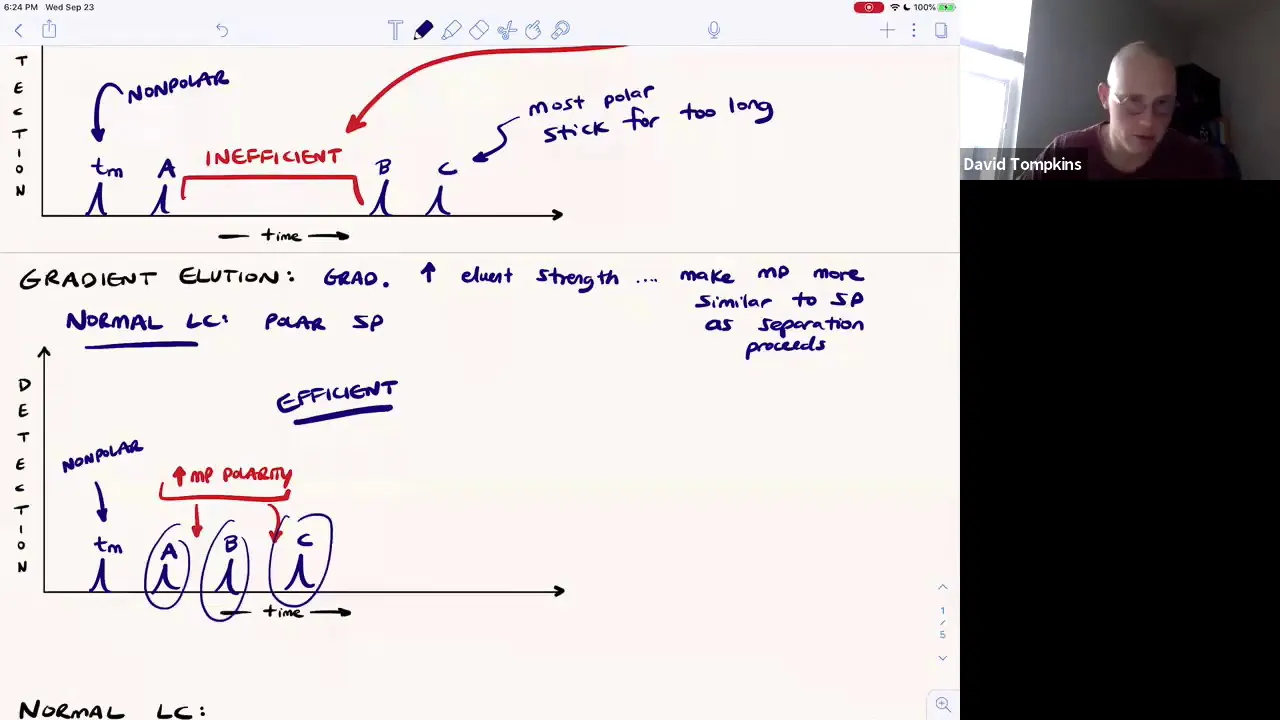 6:24 PM Wed Sep 23
100%
DETECTION
NONPOLAR
most polar
stick for too long
tm A INEFFICIENT B C
time
GRADIENT ELUTION: GRAD. ↑ eluent strength .... make MP more
similar to SP
as separation
proceeds
NORMAL LC: POLAR SP
DETECTION
EFFICIENT
NONPOLAR
↑ MP POLARITY
tm A B C
time
NORMAL LC:
1
/
5
David Tompkins